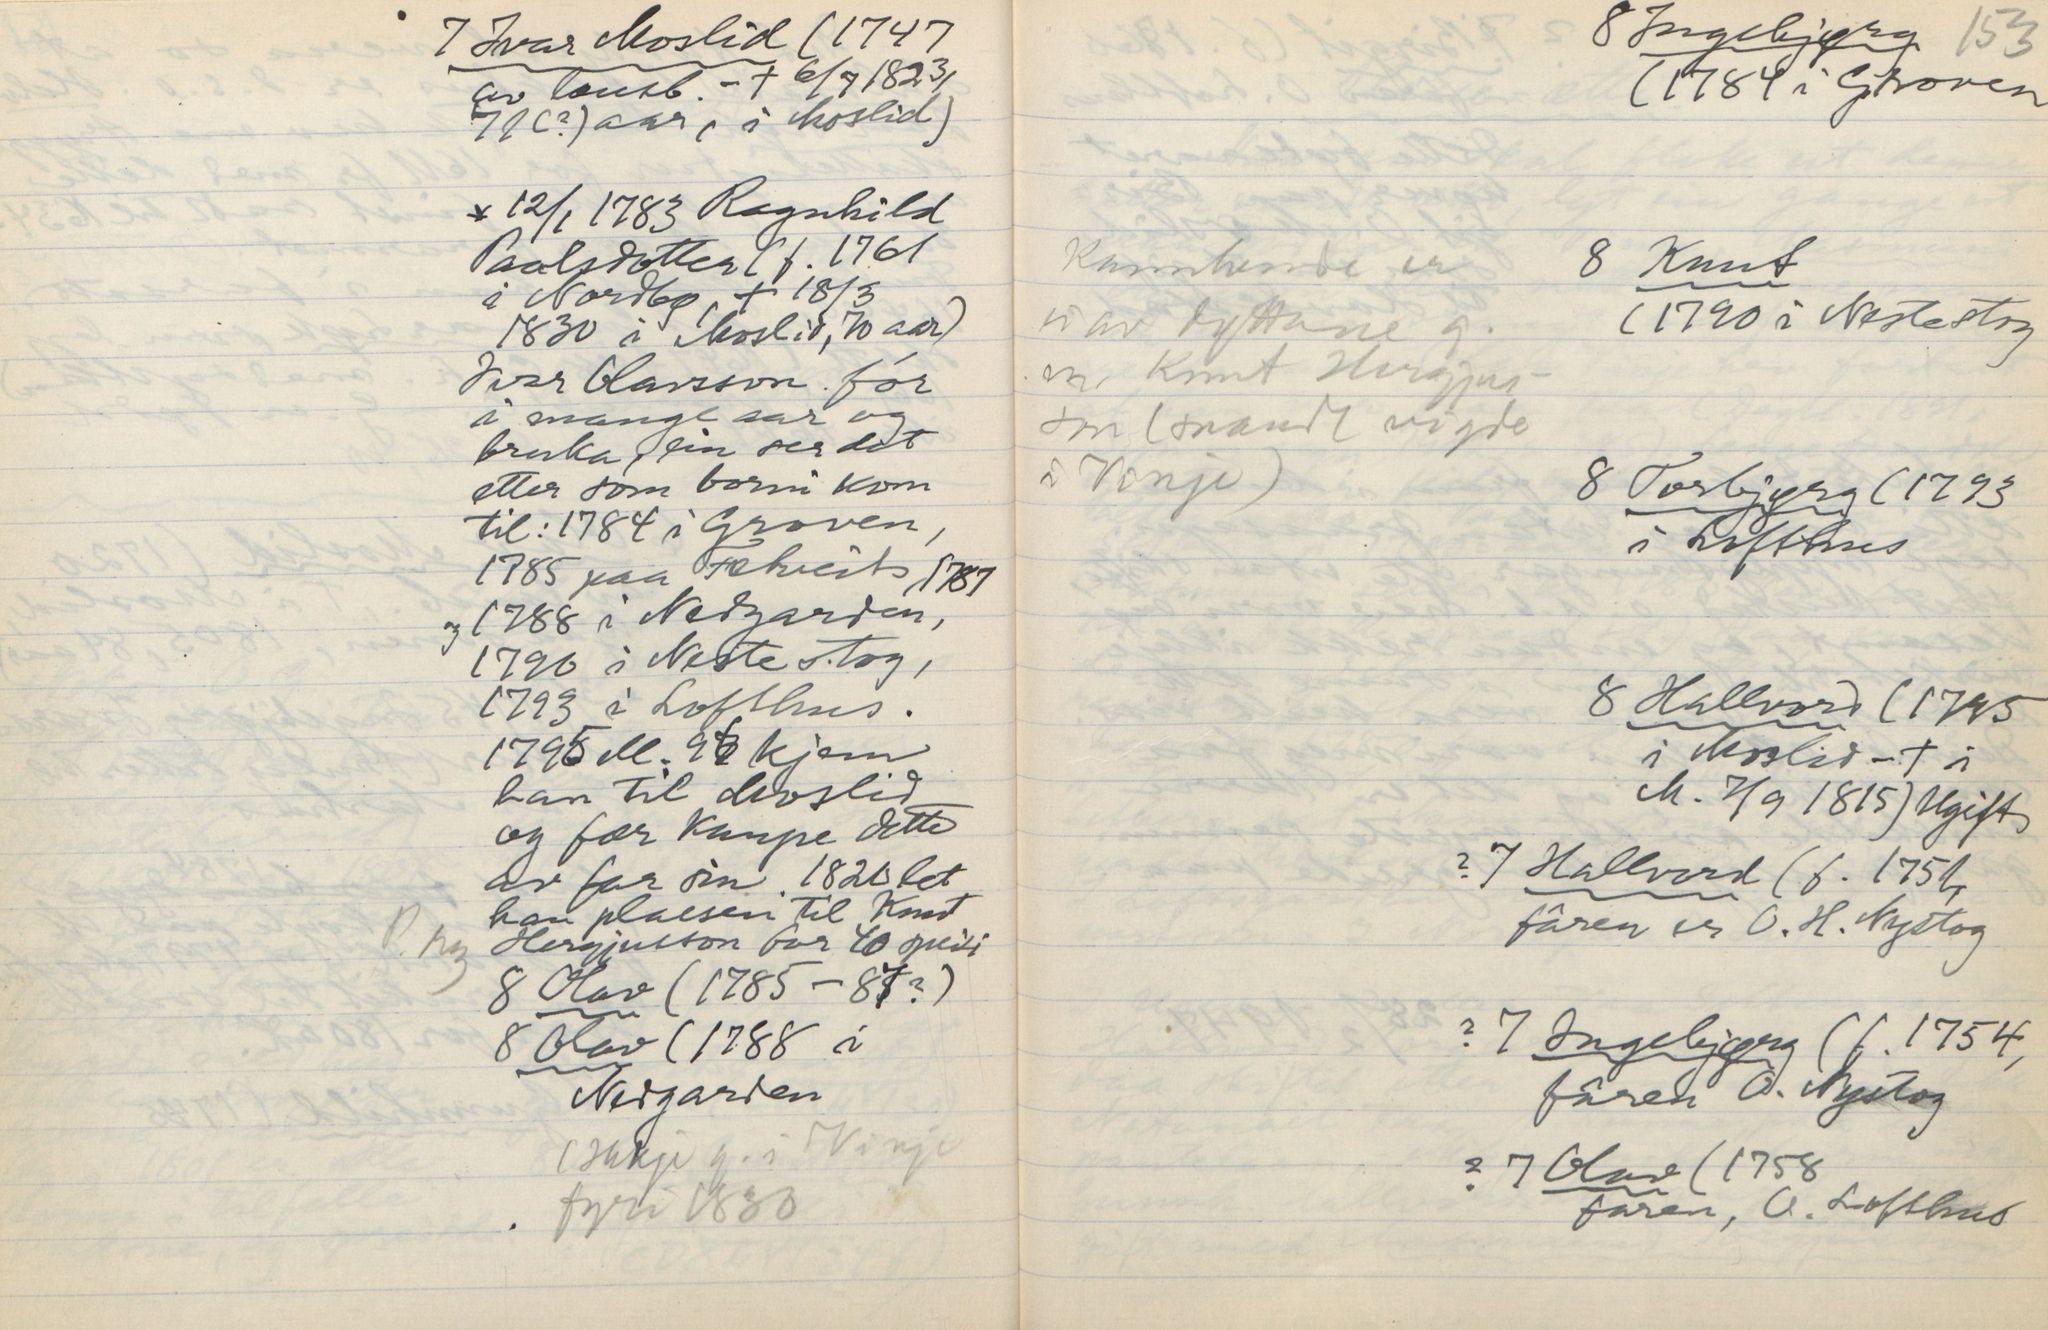 7 Ivar Moslid (1747
av lausb. – † 6/7 1823,
71(?) aar, i Moslid)
* 12/1 1783 Ragnhild
Paalsdotter (f. 1761
i Nordbø, † 18/3
1830 i Moslid, 70 aar)
Ivar Olavsson fór
i mange aar og
bruka, ein ser det
etter som borni kom
til: 1784 i Groven,
1785 paa 1787
og 1788 i Nedgarden,
1790 i Nestestog,
1793 i Lofthus.
1795 kjem
han til Moslid
og fær kaupe dette
av far sin. let
han plassen til Knut
Hergjusson for 40 speci
P. ny
8 Olav (1785 – 87?)
8 Olav (1788 i
Nedgarden
(Ikkje g. i Vinje
fyri 1830
153
8 Ingebjørg
(1784 i Groven
8 Knut
(1790 i Nestestog
Kannhende er
av dottane g.
m. Knut Hergjus-
son (snaudt vigde
i Vinje)
8 Torbjørg (1793
i Lofthus
8 Hallvord (1795
i Moslid – † i
M. 7/9 1815) Ugift
? 7 Hallvord (f. 1751,
fåren er O. H. Nystog
? 7 Ingebjørg (f. 1754,
fåren O. Nystog
? 7 Olav (1758
faren, O. Lofthus